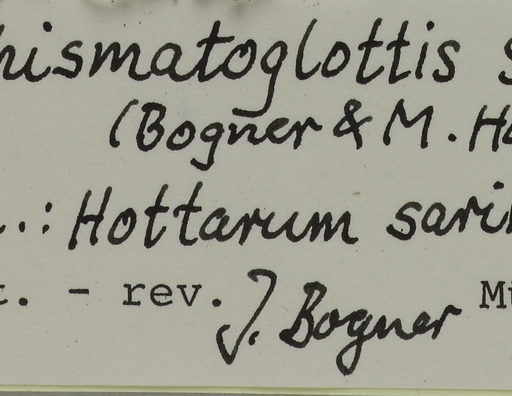 hismatoglottis s
(Bogner & M. Ho
.: Hottarum sarik
t. - rev. J. Bogner Mü